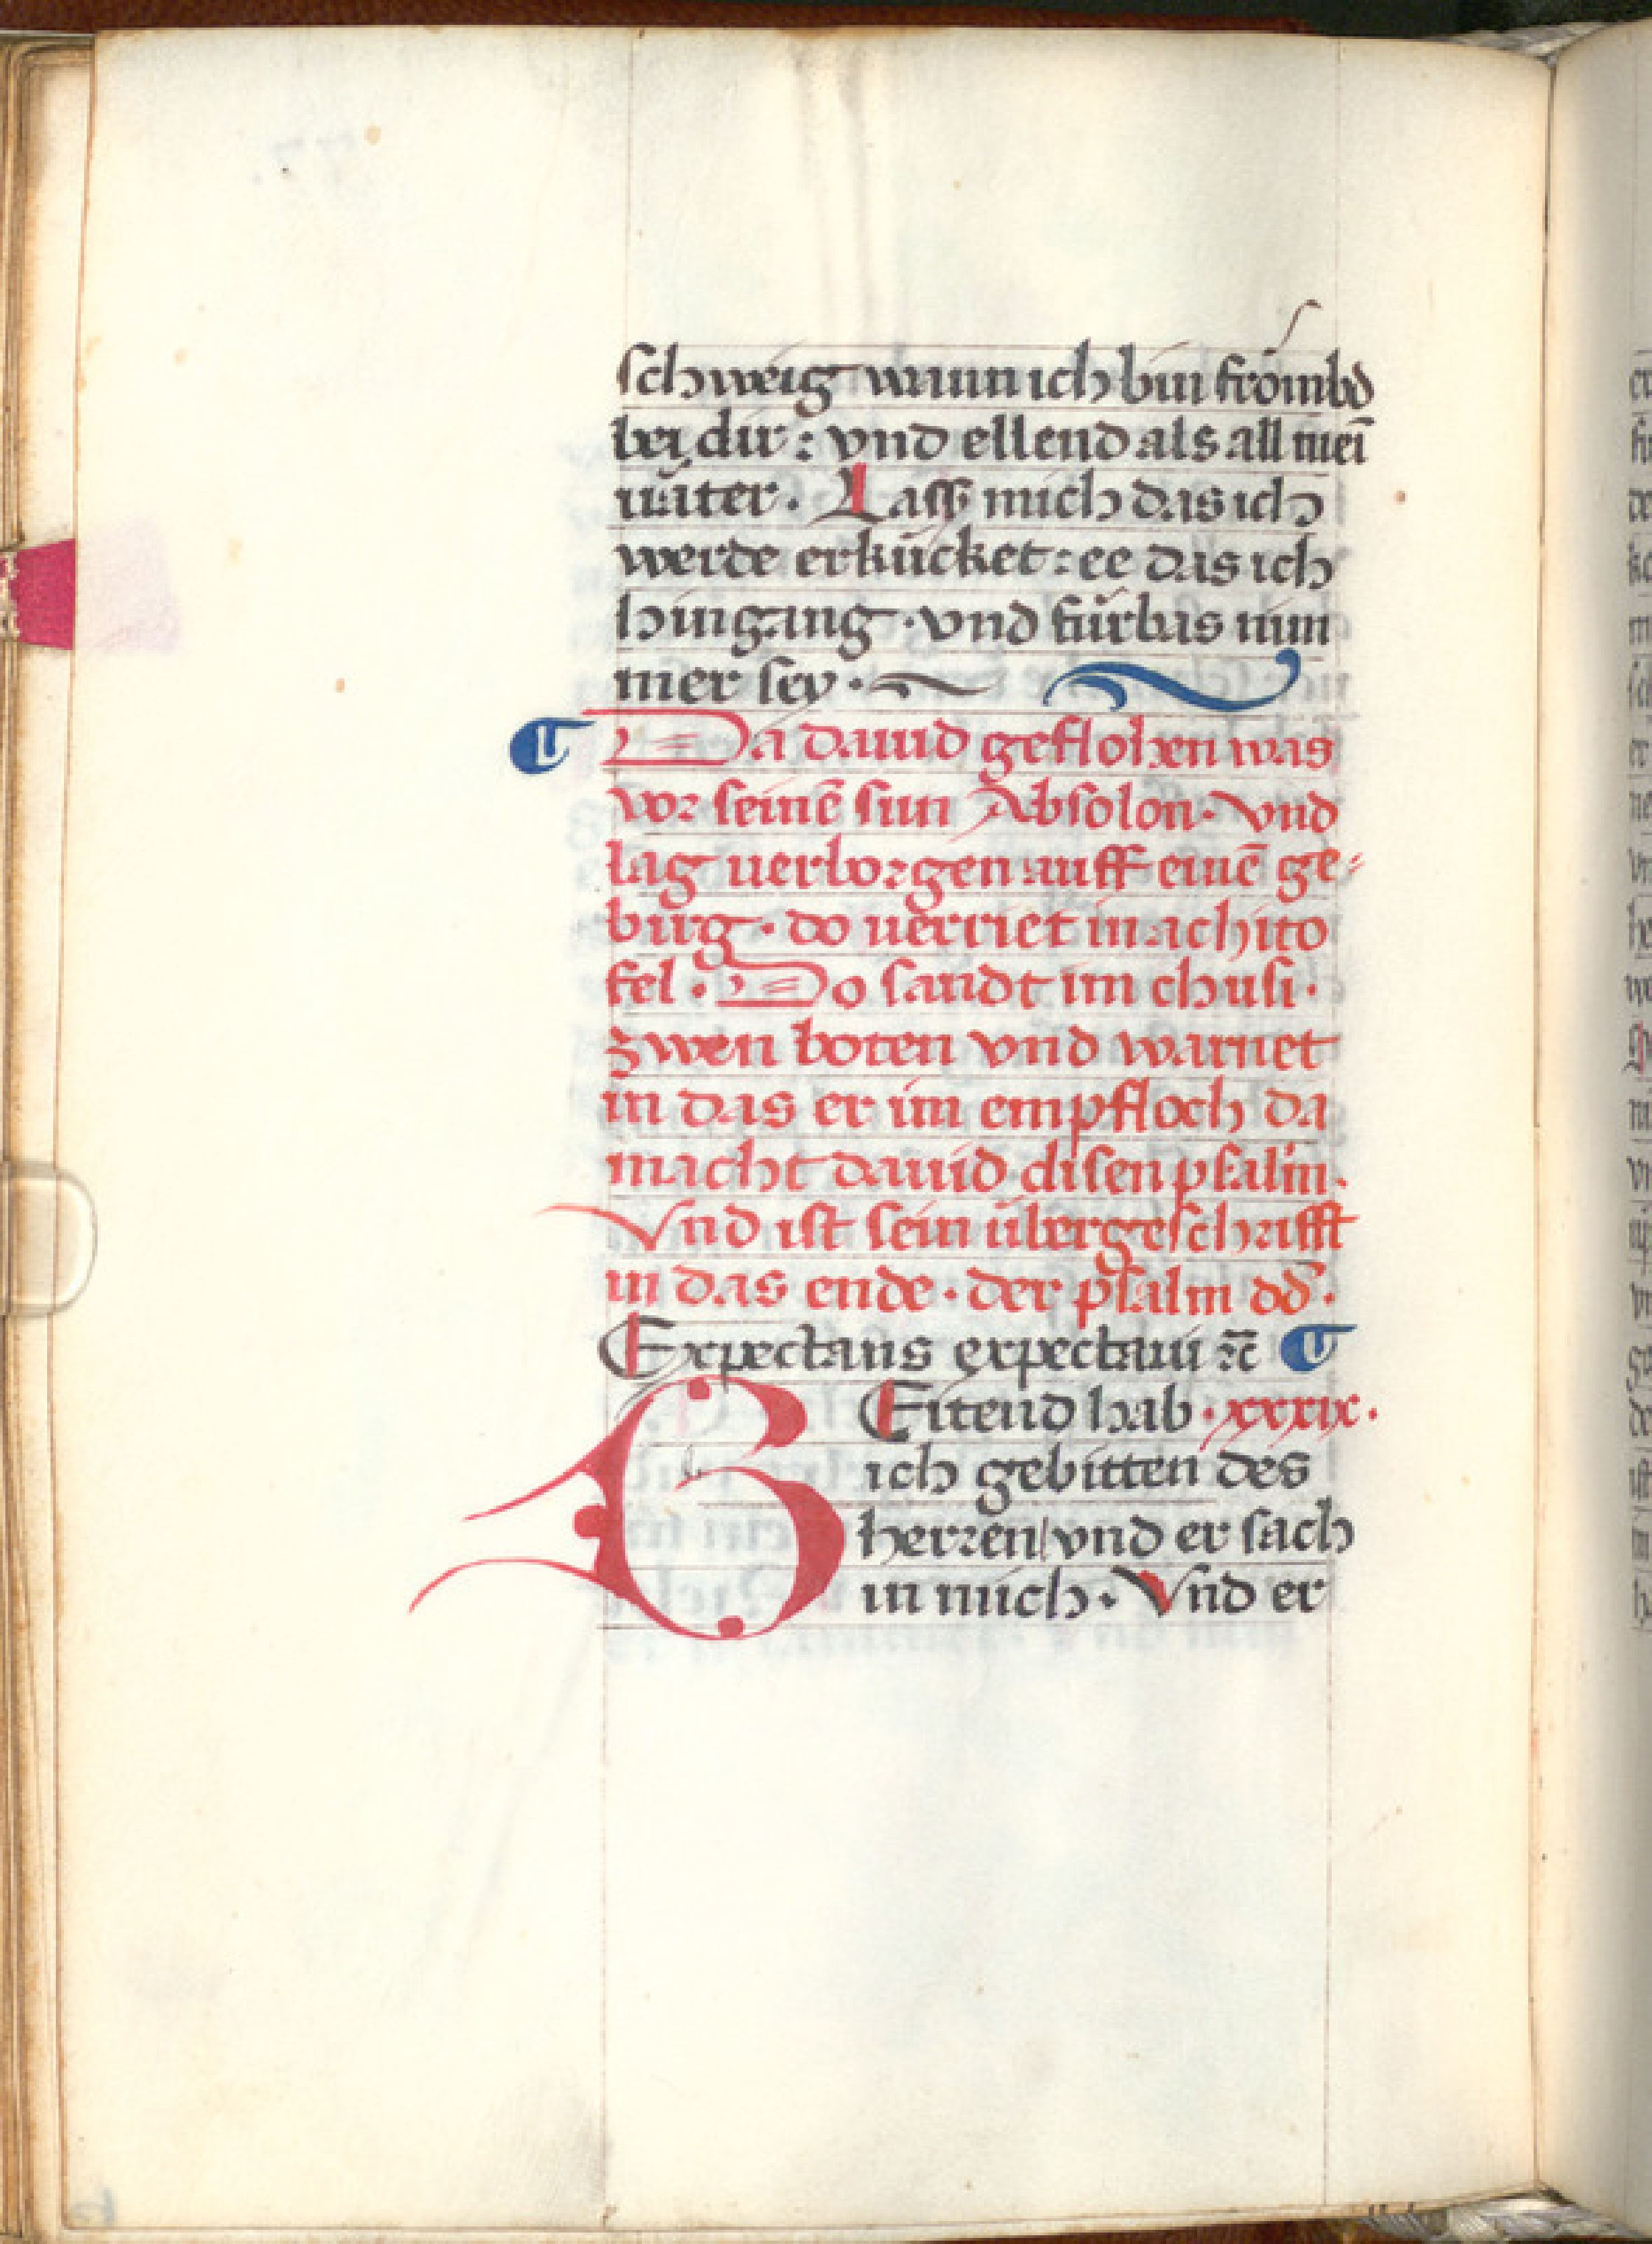 schweig wann ich bin frömbd
bei dir : vnd ellend als all mei᷑n
uäter · Lass mich das ich
werde erkücket : ee das ich
hingang · vnd fürbas nim
mer sey ·
Da dauid geflohen was
vor seinē sun Absolon · vnd
lag uerborgen auff einē ge⸗
birg · do uerriet in achito
fel · Do sandt im chusi ·
zwen boten vnd warnet
in das er im empfloch da
macht dauid disen psalm ·
Vnd ist sein übergeschrifft
in das ende · der psalm dd̄ ·
Expectans expectaui ⁊c̄
BEitend hab · xxxix ·
ich gebitten des
herren / vnd er sach
in mich · Vnd er